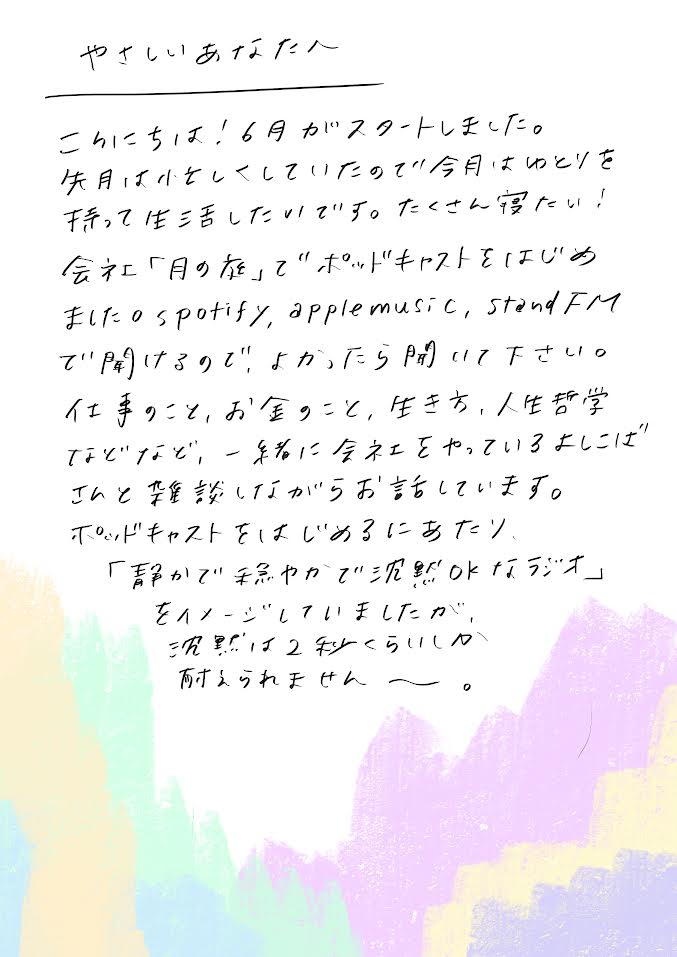 やさしいあなたへ
こんにちは！6月がスタートしました。
先月は忙しくしていたので今月はゆとりを
持って生活したいです。たくさん寝たい！
会社「月の庭」でポッドキャストをはじめ
ました。spotify, applemusic, standFM
で聞けるので、よかったら聞いて下さい。
仕事のこと、お金のこと、生き方、人生哲学
などなど、一緒に会社をやっているよしこば
さんと雑談しながらお話しています。
ポッドキャストをはじめるにあたり、
「静かで穏やかで沈黙OKなラジオ」
をイメージしていましたが、
沈黙は2秒くらいしか
耐えられません〜。